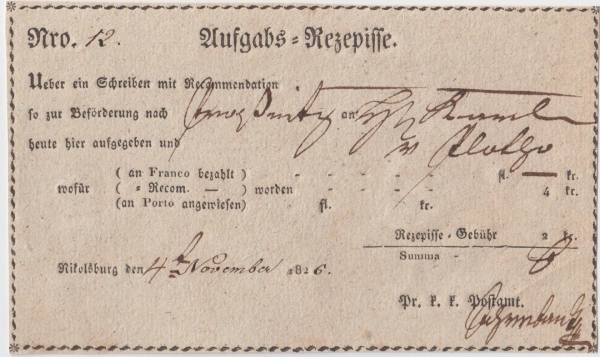 Nro. 12. Aufgabs-Rezepisse.
Ueber ein Schreiben mit Recommendation
so zur Beförderung nach an
heute hier aufgegeben und v Plotho
(an Franco bezahlt) - - - - - fl. — kr.
wofür ( = Recom. — ) worden - - - - - 4 kr.
(an Porto angewiesen) - fl. kr.
Rezepisse-Gebühr 2 kr.
Summa - 6
Nikolsburg den 4t November 1826.
Pr. k. k. Postamt.